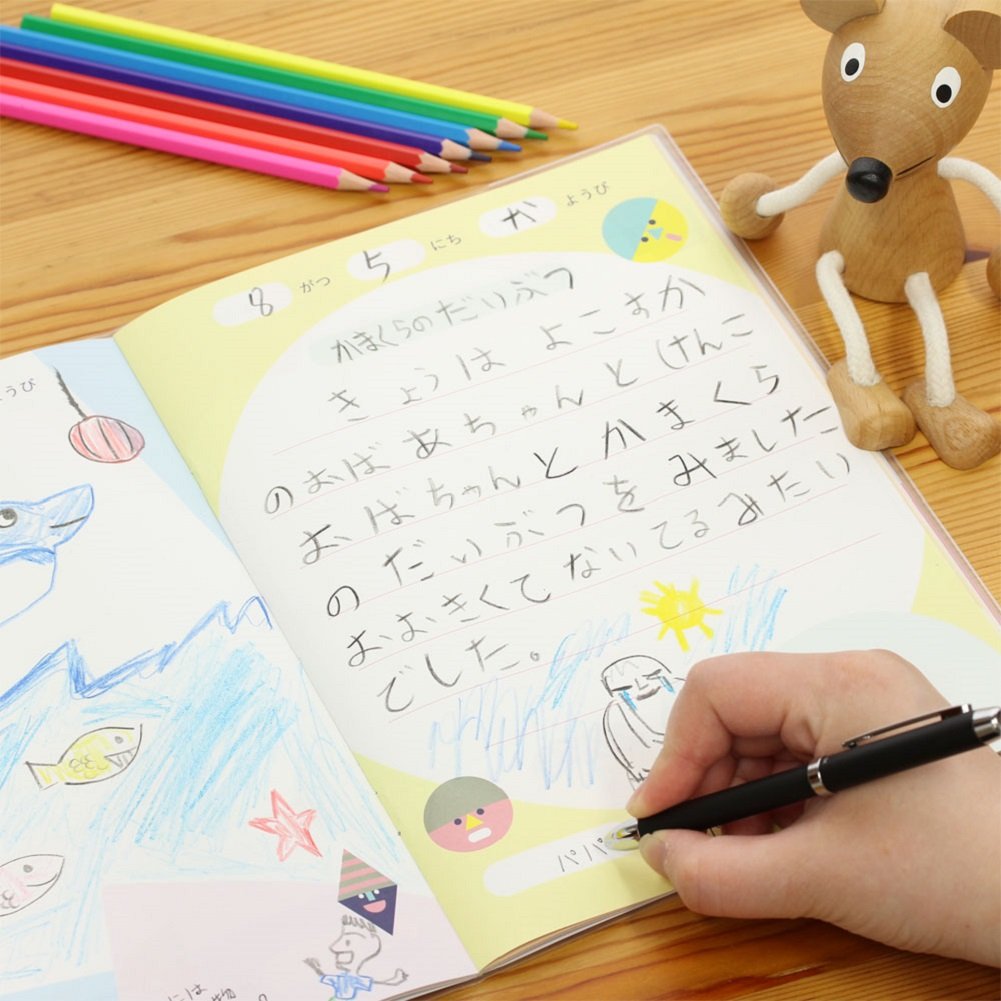 ようび
8 がつ 5 にち か ようび
かまくらのだいぶつ
きょうは よこすか
のおばあちゃんと けんこ
おばちゃんと かまくら
の だいぶつを みました
おおきくて ないてるみたい
でした。
パパ